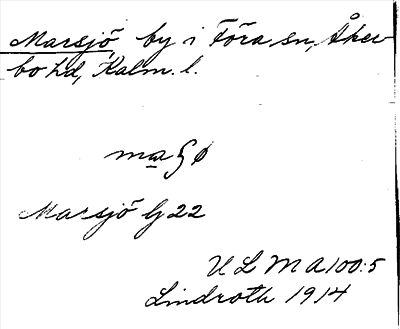 Marsjö, by i Föra sn, Åker-
bo hd, Kalm. l.
Marsjö lj 22
U L M A 100:5
Lindroth 1914